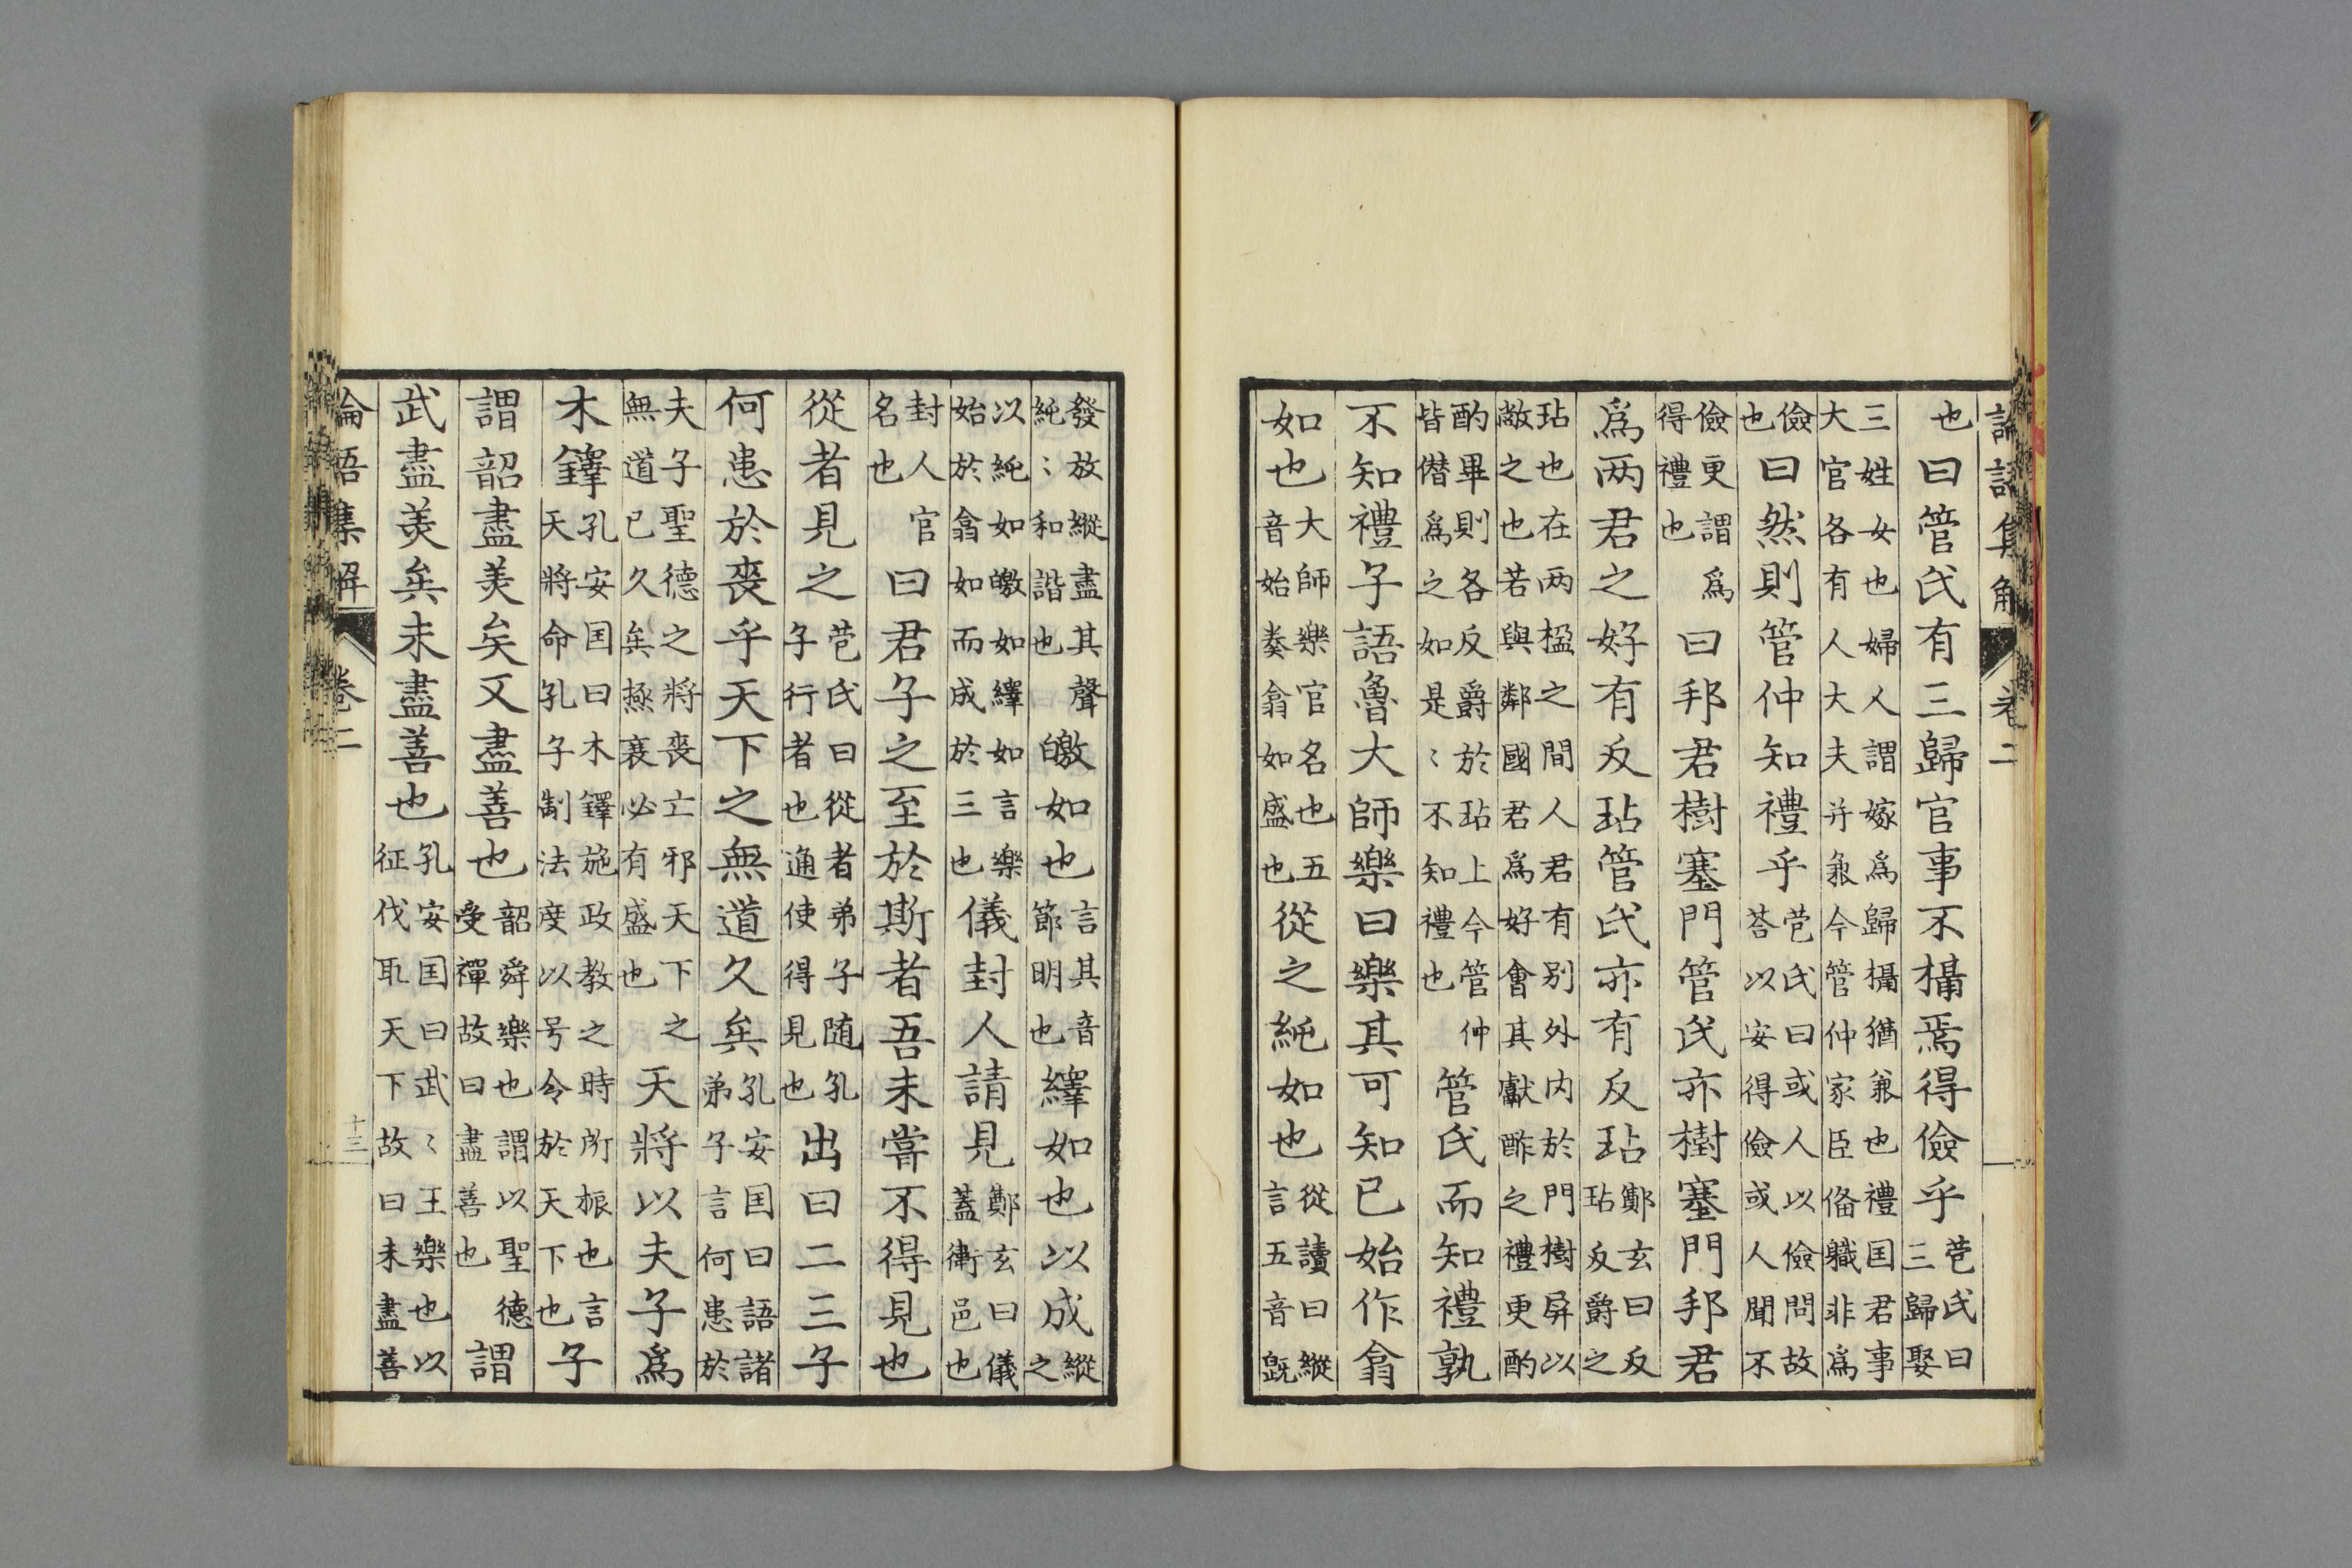 論語集解 卷二
也曰管氏有三歸官事不攝焉得儉乎苞氏曰三歸娶
三姓女也婦人謂嫁爲歸攝猶兼也禮国君事大官各有人大夫并兼今管仲家臣俻軄非爲
儉也曰然則管仲知禮乎苞氏曰或人以儉問故荅以安得儉或人聞不
儉更謂爲得禮也曰邦君樹塞門管氏亦樹塞門邦君
爲兩君之好有反坫管氏亦有反坫鄭玄曰反坫反爵之
坫也在兩楹之間人君有别外内於門樹屏以敵之也若與鄰國君爲好會其獻酢之禮更酌
酌畢則各反爵於坫上今管仲皆僣爲之如是〻不知禮也管氏而知禮孰
不知禮子語魯大師樂曰樂其可知已始作翕
如也大師樂官名也五音始奏翕如盛也從之純如也從讀曰縱言五音旣
發放縱盡其聲純〻和諧也皦如也言其音節明也繹如也以成縱之
以純如皦如繹如言樂始於翕如而成於三也儀封人請見鄭玄曰儀蓋衛邑也
封人官名也曰君子之至於斯者吾未嘗不得見也
從者見之苞氏曰從者弟子随孔子行者也通使得見也出曰二三子
何患於喪乎天下之無道久矣孔安国曰語諸弟子言何患於
夫子聖德之將喪亡邪天下之無道已久矣極衰必有盛也天將以夫子爲
木鐸孔安国曰木鐸施政教之時所振也言天將命孔子制法度以号令於天下也子
謂韶盡美矣又盡善也韶舜樂也謂以聖德受禪故曰盡善也謂
武盡美矣未盡善也孔安国曰武〻王樂也以征伐取天下故曰未盡善
論語集解 卷二 十三